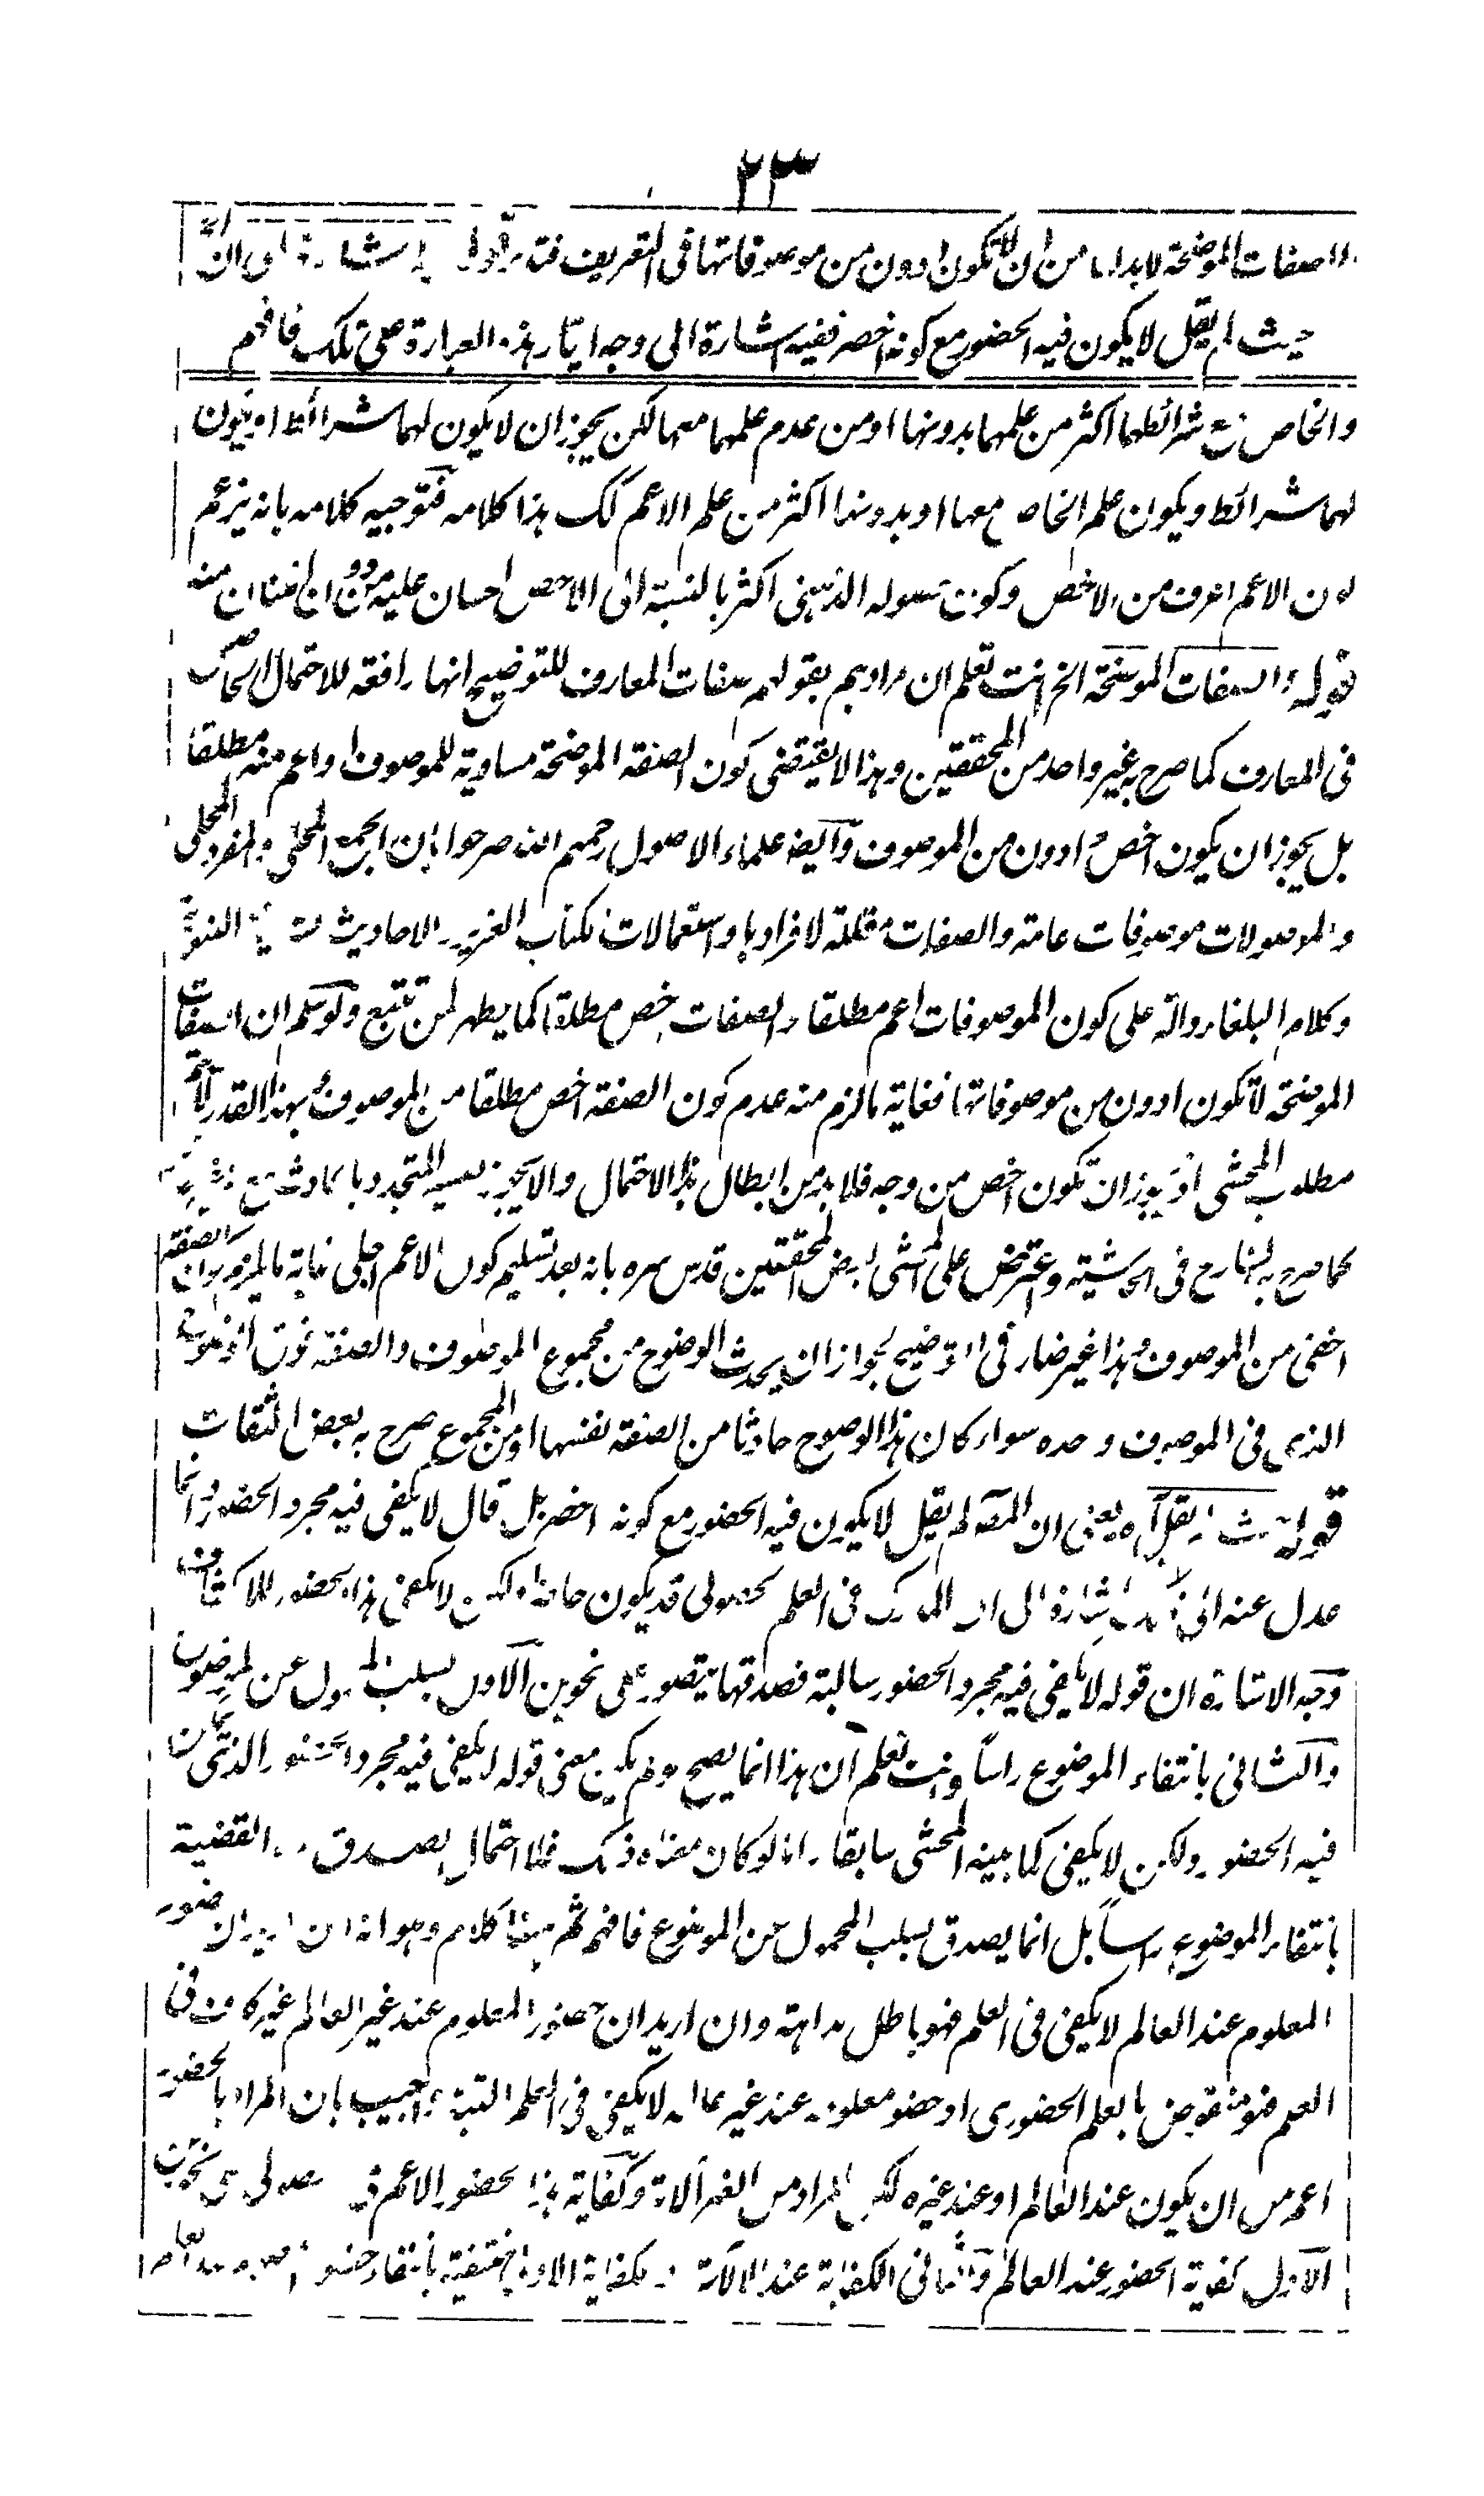 ٢٣
الصفات الموضحة لابد لها من ان لا تكون ادون من موصوفاتها فى التعريف فتدبر قوله اشارة الى ان
حيث لم يقل لا يكون فيه الحضور مع كونه اخصر ففيه اشارة الى وجه ايثار هذه العبارة على تلك فافهم
والخاص مع شرائطهما اكثر من علمهما بدونها او من عدم علمهما معهما لكن يجوز ان لا يكون لهما شرائط او يكون
لهما شرائط ويكون علم الخاص معها او بدونها اكثر من علم الاعم كك هذا كلامه فتوجيه كلامه بانه يزعم
كون الاعم اعرف من الاخص وكون حصوله الذهنى اكثر بالنسبة الى الاخص احسان عليه من دون امتنان منه
قوله والصفات الموضحة الخ انت تعلم ان مرادهم بقولهم صفات المعارف للتوضيح انها رافعة للاحتمال الحاصل
فى المعارف كما صرح به غير واحد من المحققين وهذا لا يقتضى كون الصفة الموضحة مساوية للموصوف او اعم منه مطلقا
بل يجوز ان يكون اخص وادون من الموصوف وايضا علماء الاصول رحمهم الله صرحوا بان الجمع المحلى والمفرد المحلى
والموصولات موصوفات عامة والصفات مقللة لافرادها واستعمالات الكتاب العزيز والاحاديث النبوية
وكلام البلغاء دالة على كون الموصوفات اعم مطلقا والصفات اخص مطلقا كما يظهر لمن تتبع ولو سلم ان الصفات
الموضحة لا تكون ادون من موصوفاتها فغاية ما لزم منه عدم كون الصفة اخص مطلقا من الموصوف وبهذا القدر لا يتم
مطلوب المحشى اذ يجوز ان تكون اخص من وجه فلابد من ابطال هذا الاحتمال والا يجوز تفسير المتجدد بالحادث
كما صرح به الشارح فى الحاشية واعترض على المحشى بعض المحققين قدس سره بانه بعد تسليم كون الاعم اجلى غاية ما يلزم كون الصفة
اخفى من الموصوف وهذا غير ضار فى التوضيح لجواز ان يحدث الوضوح من مجموع الموصوف والصفة فوق الوضوح
الذى فى الموصوف وحده سواء كان هذا الوضوح حادثا من الصفة نفسها او من المجموع صرح به بعض الثقات
قوله حيث لم يقل اه يعنى ان المصنف لم يقل لا يكون فيه الحضور مع كونه اخصر بل قال لا يكفى فيه مجرد الحضور وانما
عدل عنه الى اشارة الى ان المدرك فى العلم الحصولى قد يكون حاضرا ولكن لا يكفى هذا الحضور للانكشاف
وجه الاشارة ان قوله لا يكفى فيه مجرد الحضور سالبة فصدقها يتصور على نحوين الاول بسلب المحمول عن الموضوع
والثانى بانتفاء الموضوع راسا وانت تعلم ان هذا انما يصح لو لم يكن معنى قوله لا يكفى فيه مجرد الحضور الذى كان
فيه الحضور ولكن لا يكفى كما بينه المحشى سابقا واما لو كان معناه ذلك فلا احتمال لصدق القضية
بانتفاء الموضوع راسا بل انما يصدق بسلب المحمول عن الموضوع فافهم ثم ههنا كلام وهو انه ان اريد ان حضور
المعلوم عند العالم لا يكفى فى العلم فهو باطل بداهة وان اريد ان حضور المعلوم عند غير العالم غير كاف فى
العلم فهو منقوض بالعلم الحضورى اذ حضور معلومه عند غير عالمه لا يكفى فى العلم البتة واجيب بان المراد بالحضور
اعم من ان يكون عند العالم او عند غيره لكن المراد من الغير الآلات وكفاية هذا الحضور الاعم على نحوين
الاول كفاية الحضور عند العالم والثانى الكفاية عند الآلات وكفاية الاول منتفية بانتفاء حضور